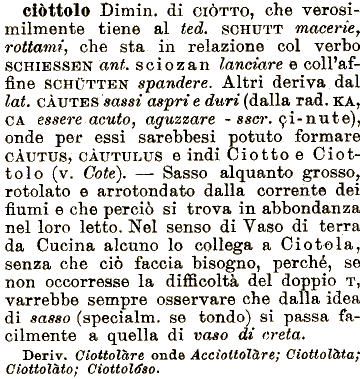 ciòttolo Dimin. di CIÒTTO, che verosi-
milmente tiene al ted. SCHUTT macerie,
rottami, che sta in relazione col verbo
SCHIESSEN ant. sciozan lanciare e coll'af-
fine SCHÜTTEN spandere. Altri deriva dal
lat. CÀUTES sassi aspri e duri (dalla rad. KA,
CA essere acuto, aguzzare - sscr. çi-nute),
onde per essi sarebbesi potuto formare
CÀUTUS, CÀUTULUS e indi Ciotto e Ciot-
tolo (v. Cote). — Sasso alquanto grosso,
rotolato e arrotondato dalla corrente dei
fiumi e che perciò si trova in abbondanza
nel loro letto. Nel senso di Vaso di terra
da Cucina alcuno lo collega a Ciotola,
senza che ciò faccia bisogno, perché, se
non occorresse la difficoltà del doppio T,
varrebbe sempre osservare che dalla idea
di sasso (specialm. se tondo) si passa fa-
cilmente a quella di vaso di creta.
Deriv. Ciottolàre onde Acciottolàre; Ciottolàta;
Ciottolàto; Ciottolóso.